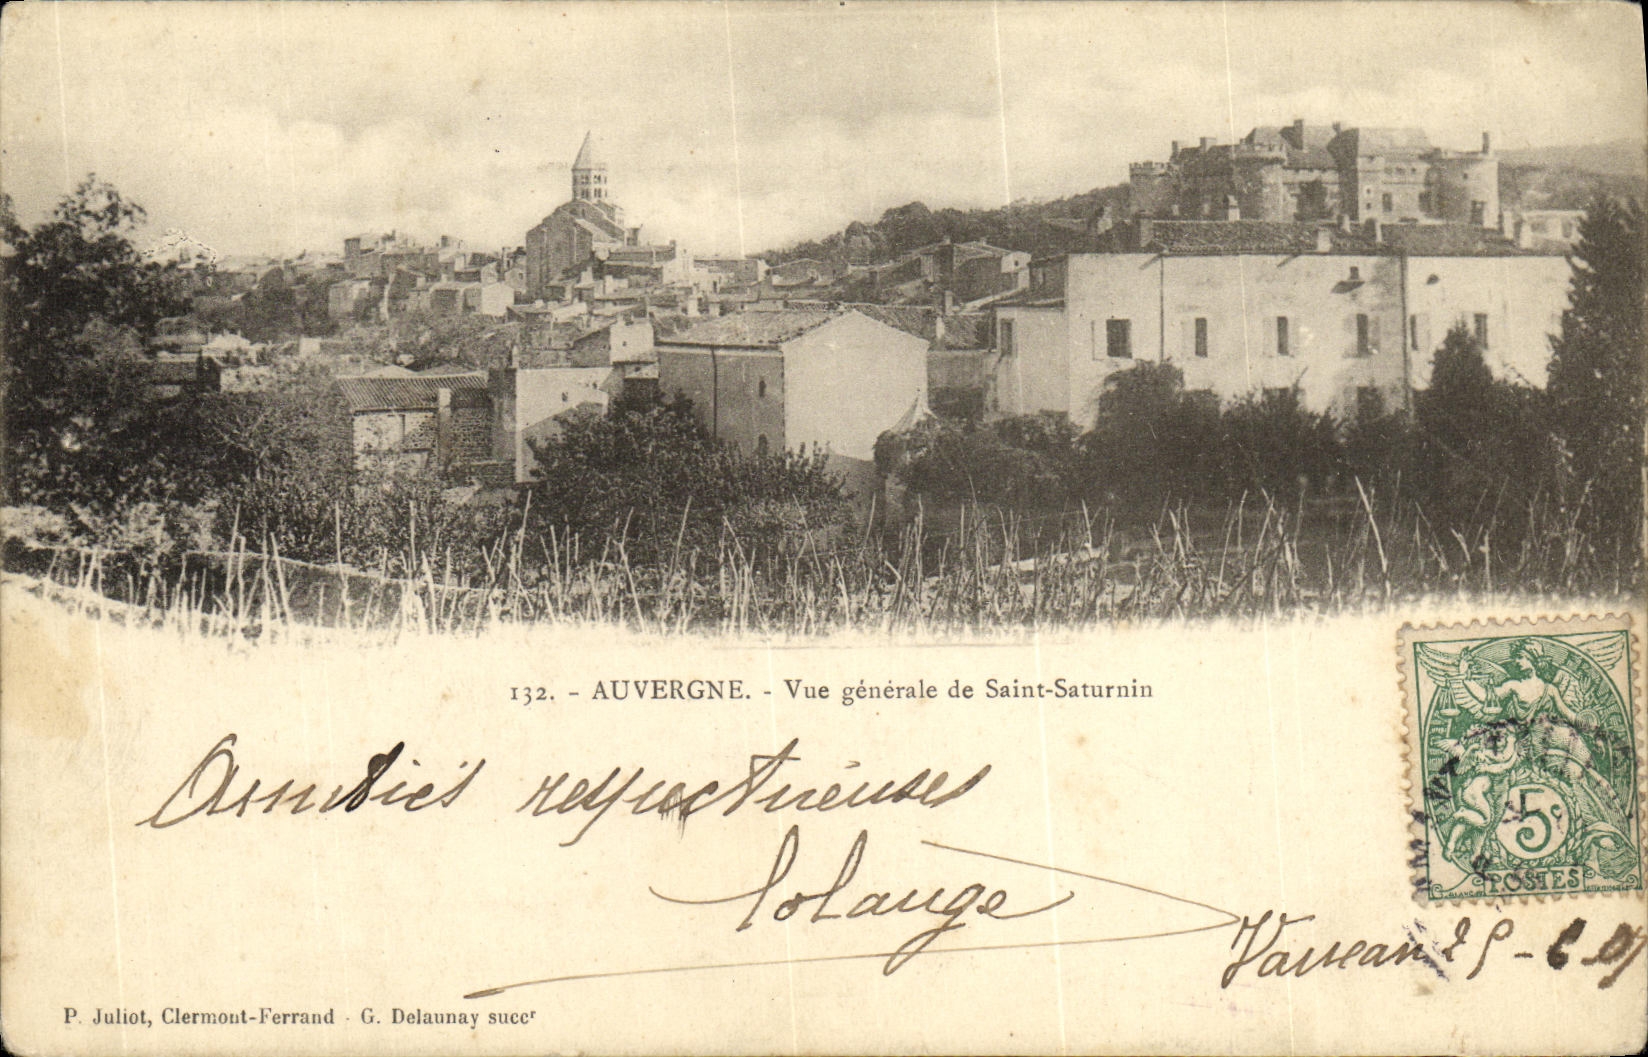 132. - AUVERGNE. - Vue générale de Saint-Saturnin
Amitiés respectueuses
Solange
25-6-05
P. Juliot, Clermont-Ferrand - G. Delaunay succr
5c
POSTES